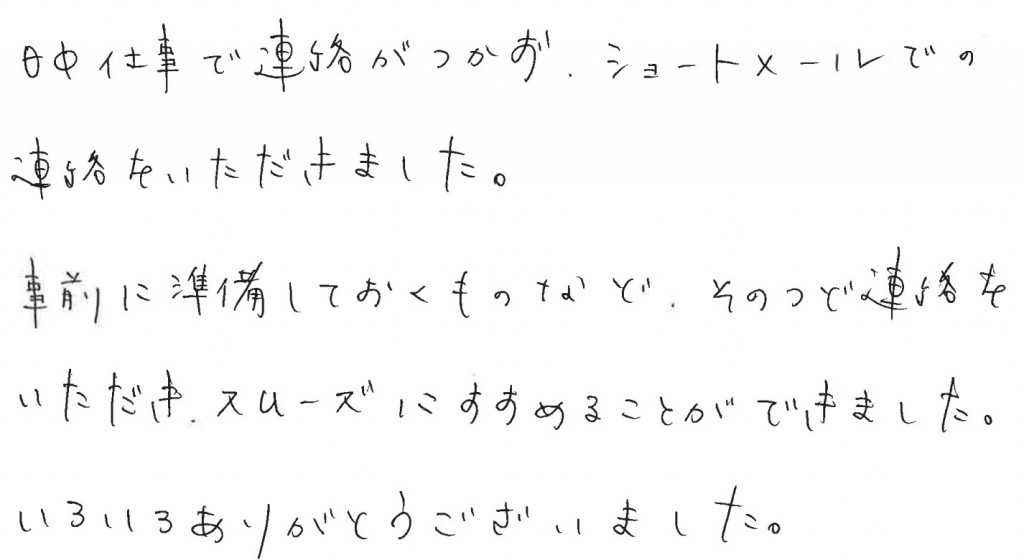 日中仕事で連絡がつかず、ショートメールでの
連絡をいただきました。
事前に準備しておくものなど、そのつど連絡を
いただき、スムーズにすすめることができました。
いろいろありがとうございました。